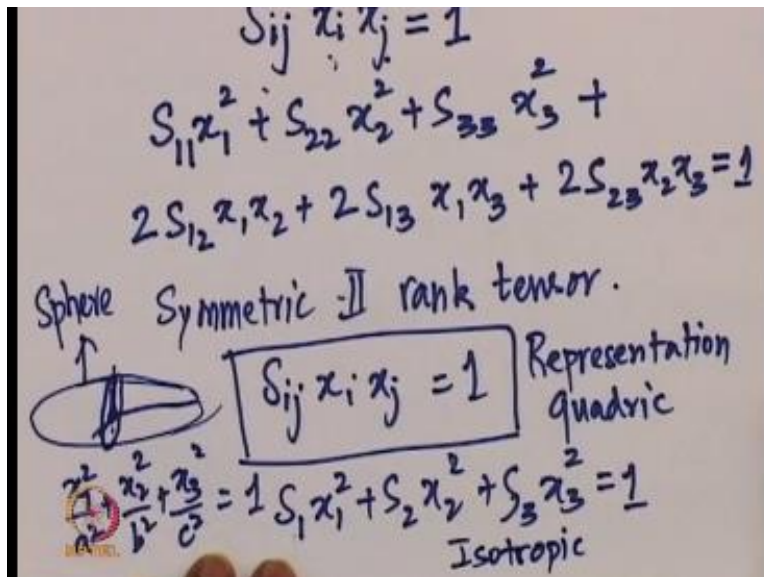 Sij xi xj = 1
S₁₁x₁² + S₂₂x₂² + S₃₃x₃² +
2S₁₂x₁x₂ + 2S₁₃x₁x₃ + 2S₂₃x₂x₃ = 1
Sphere Symmetric II rank tensor.
Sij xi xj = 1
Representation
quadric
x₁²/a² + x₂²/b² + x₃²/c² = 1 S₁x₁² + S₂x₂² + S₃x₃² = 1
Isotropic